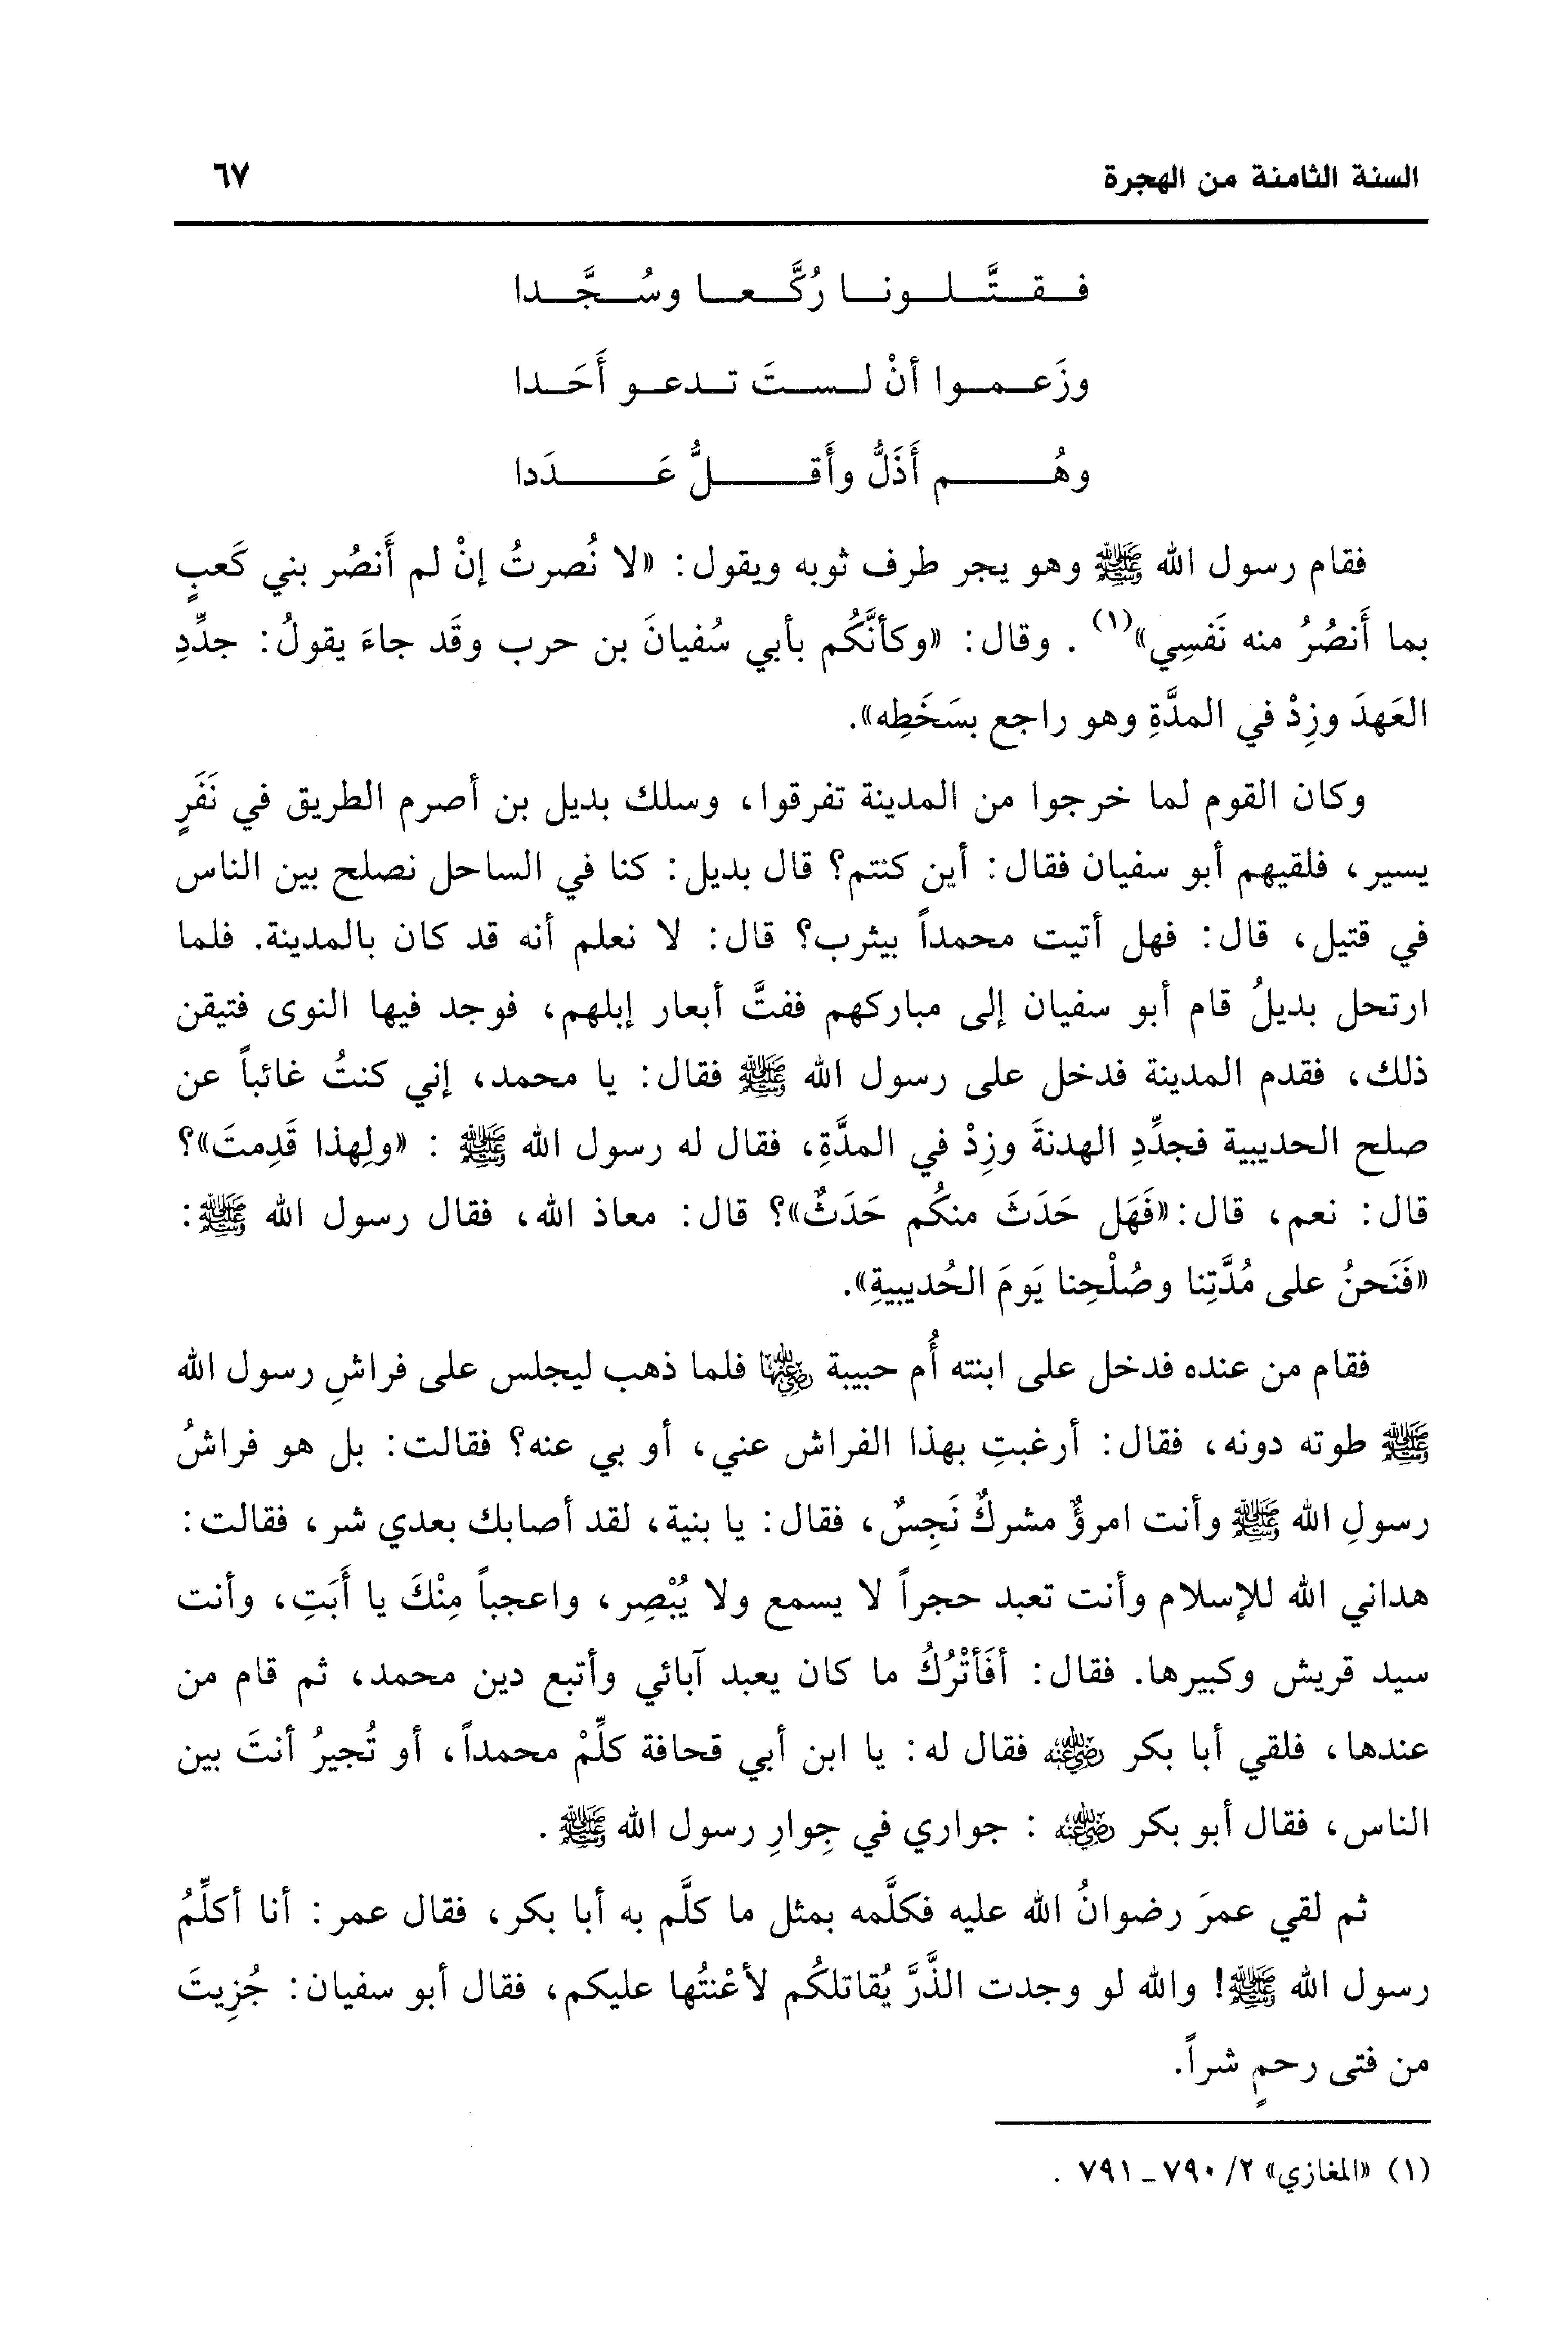 السنة الثامنة من الهجرة ٦٧
فقتَّلونا رُكَّعا وسُجَّدا
وزَعموا أنْ لستَ تدعو أَحَدا
وهُم أَذَلُّ وأَقلُّ عَدَدا
فقام رسول الله ﷺ وهو يجر طرف ثوبه ويقول: «لا نُصرتُ إنْ لم أَنصُر بني كَعبٍ
بما أَنصُرُ منه نَفسِي»(١). وقال: «وكأنَّكُم بأبي سُفيانَ بن حرب وقَد جاءَ يقولُ: جدِّدِ
العَهدَ وزِدْ في المدَّةِ وهو راجع بسَخَطِه».
وكان القوم لما خرجوا من المدينة تفرقوا، وسلك بديل بن أصرم الطريق في نَفَرٍ
يسير، فلقيهم أبو سفيان فقال: أين كنتم؟ قال بديل: كنا في الساحل نصلح بين الناس
في قتيل، قال: فهل أتيت محمداً بيثرب؟ قال: لا نعلم أنه قد كان بالمدينة. فلما
ارتحل بديلُ قام أبو سفيان إلى مباركهم ففتَّ أبعار إبلهم، فوجد فيها النوى فتيقن
ذلك، فقدم المدينة فدخل على رسول الله ﷺ فقال: يا محمد، إني كنتُ غائباً عن
صلح الحديبية فجدِّدِ الهدنةَ وزِدْ في المدَّةِ، فقال له رسول الله ﷺ : «ولِهذا قَدِمتَ»؟
قال: نعم، قال: «فَهَل حَدَثَ منكُم حَدَثٌ»؟ قال: معاذ الله، فقال رسول الله ﷺ:
«فَنَحنُ على مُدَّتِنا وصُلْحِنا يَومَ الحُديبيةِ».
فقام من عنده فدخل على ابنته أُم حبيبة رضي الله عنها فلما ذهب ليجلس على فراشِ رسول الله
ﷺ طوته دونه، فقال: أرغبتِ بهذا الفراش عني، أو بي عنه؟ فقالت: بل هو فراشُ
رسولِ الله ﷺ وأنت امرؤٌ مشركٌ نَجِسٌ، فقال: يا بنية، لقد أصابك بعدي شر، فقالت:
هداني الله للإسلام وأنت تعبد حجراً لا يسمع ولا يُبْصِر، واعجباً مِنْكَ يا أَبَتِ، وأنت
سيد قريش وكبيرها. فقال: أفَأتْرُكُ ما كان يعبد آبائي وأتبع دين محمد، ثم قام من
عندها، فلقي أبا بكر رضي الله عنه فقال له: يا ابن أبي قحافة كلِّمْ محمداً، أو تُجيرُ أنتَ بين
الناس، فقال أبو بكر رضي الله عنه : جواري في جِوارِ رسول الله ﷺ .
ثم لقي عمرَ رضوانُ الله عليه فكلَّمه بمثل ما كلَّم به أبا بكر، فقال عمر: أنا أكلِّمُ
رسول الله ﷺ! والله لو وجدت الذَّرَّ يُقاتلكُم لأعْنتُها عليكم، فقال أبو سفيان: جُزِيتَ
من فتى رحمٍ شراً.
(١) «المغازي» ٢/ ٧٩٠ـ ٧٩١ .